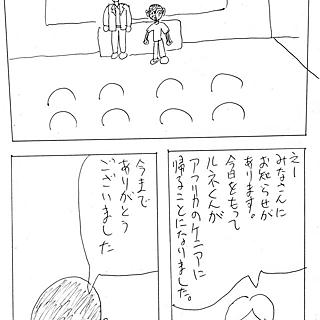 えー
みなさんに
お知らせが
あります。
今日をもって
ルネくんが
アフリカのケニアに
帰ることになりました。
今まで
ありがとう
ございました